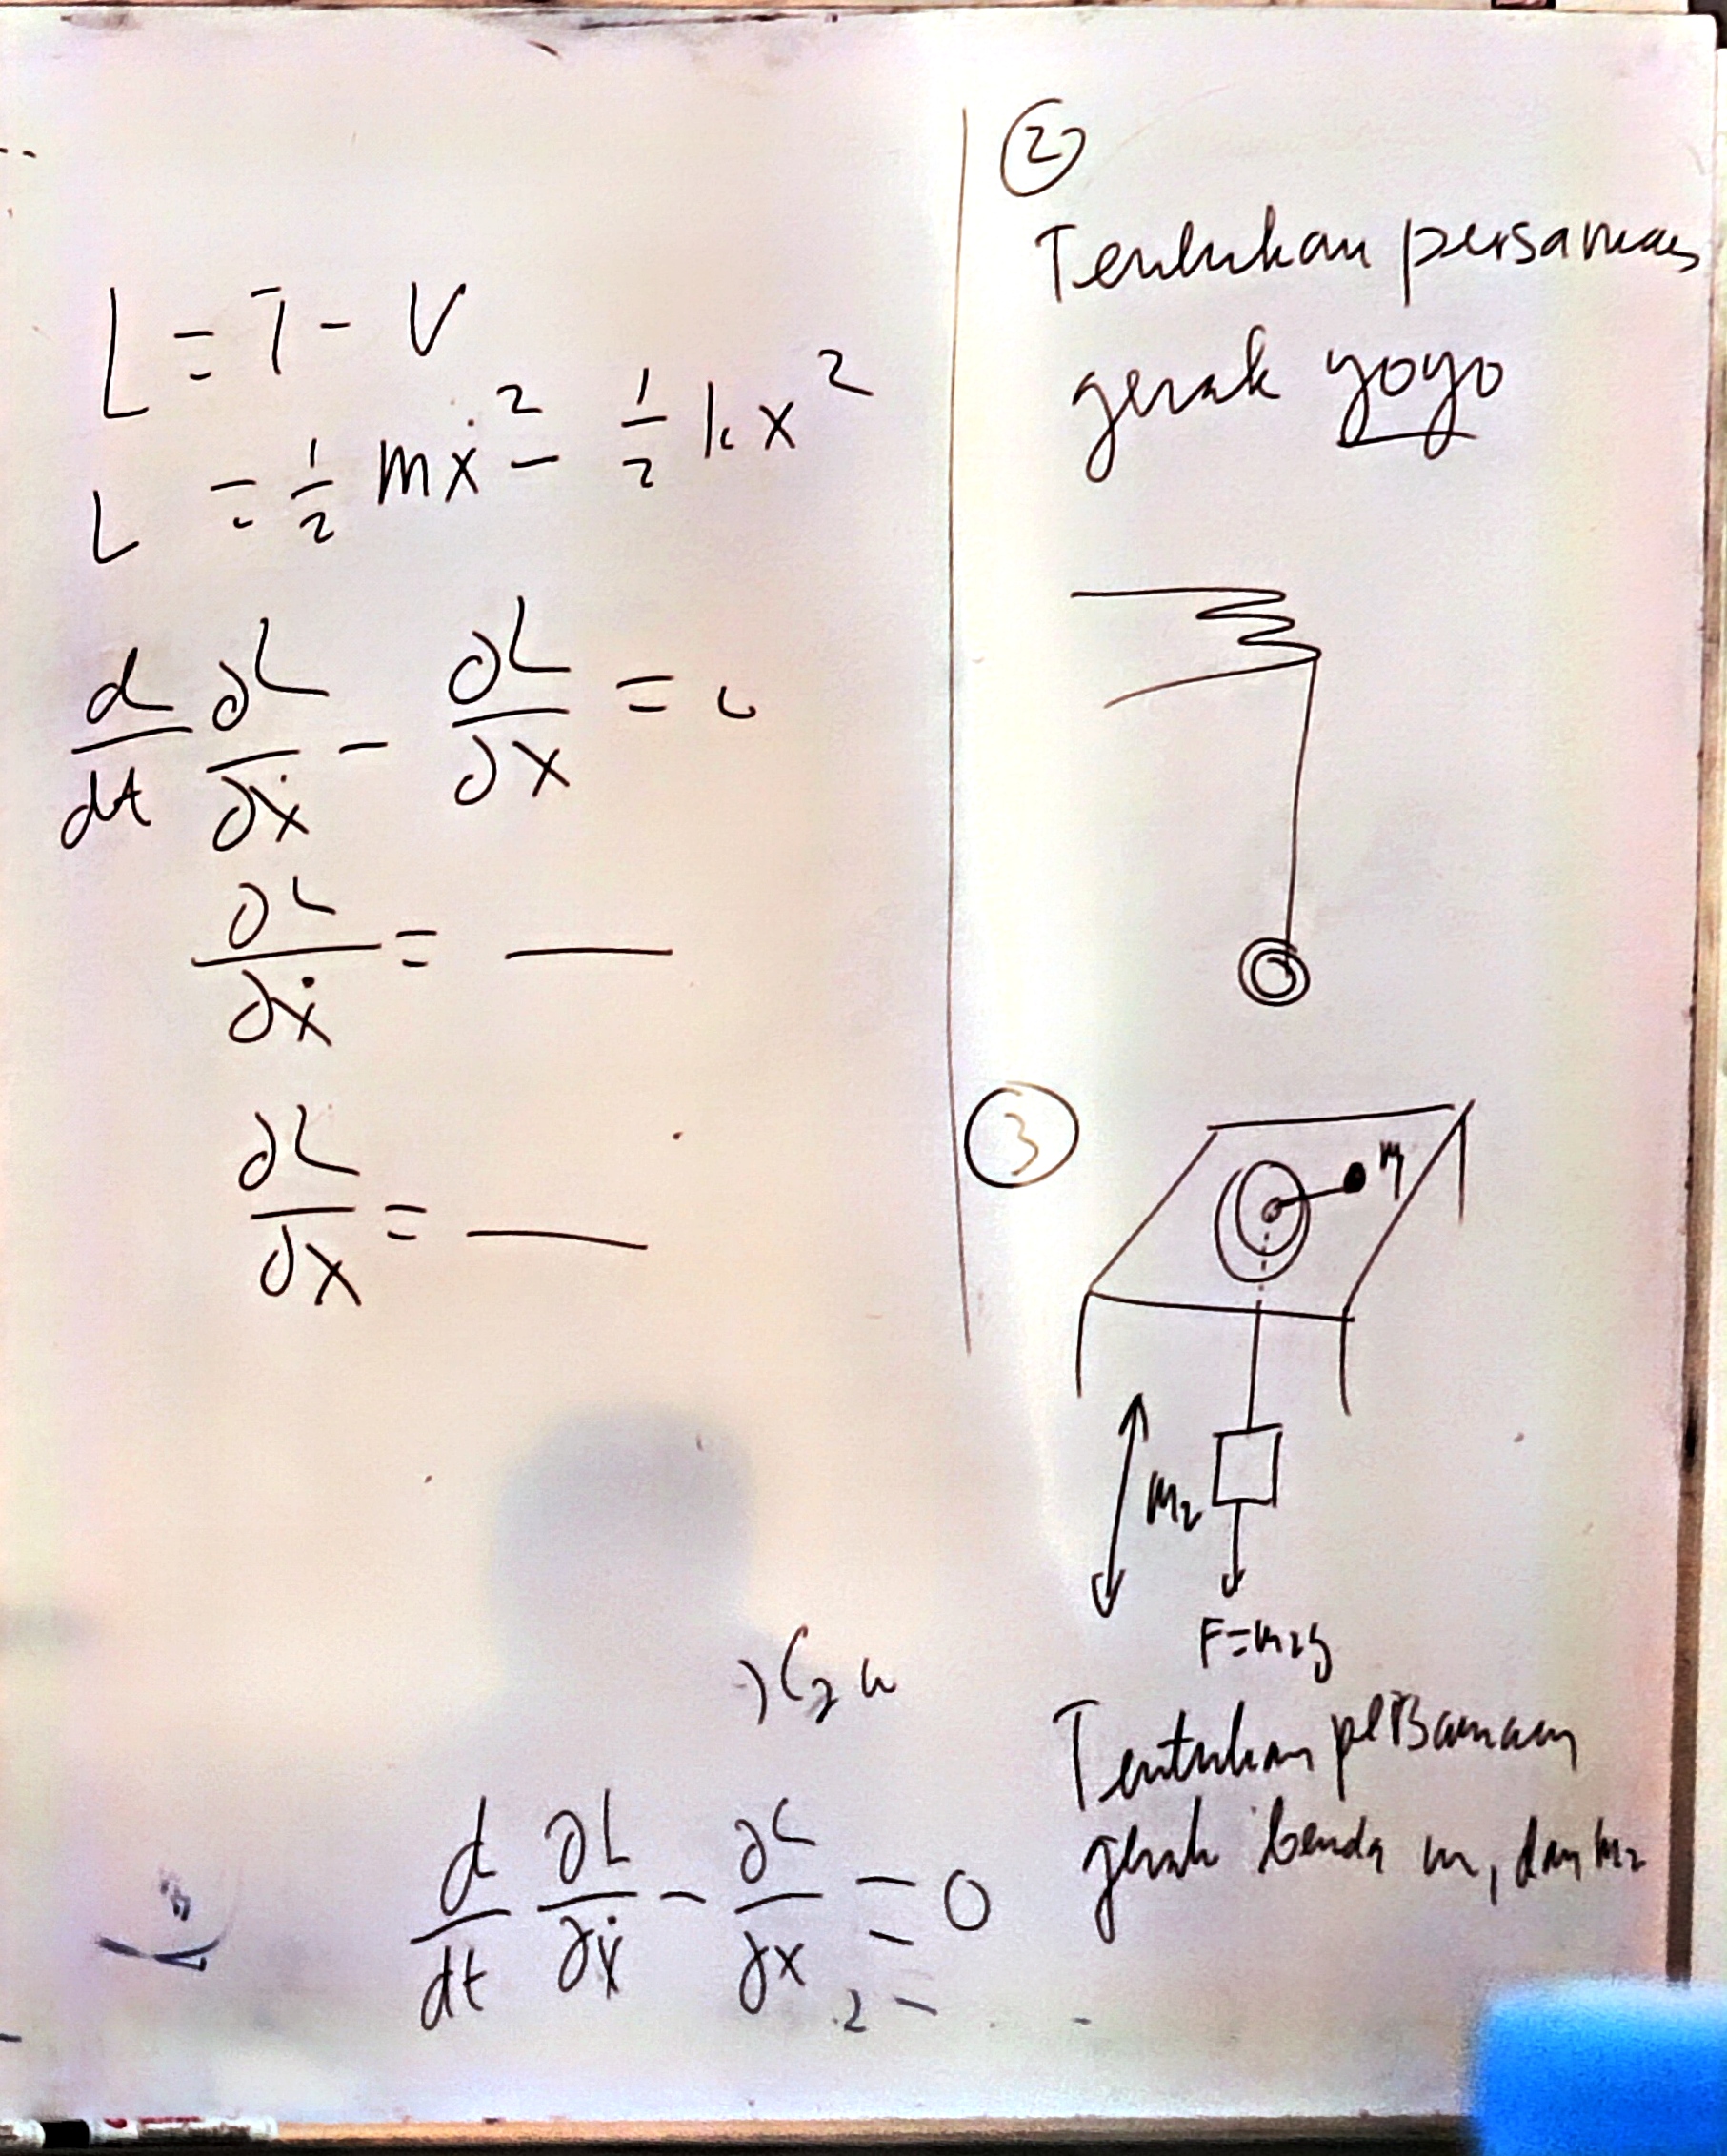 L = T - V
L = 1/2 mẋ² - 1/2 kx²
d/dt ∂L/∂ẋ - ∂L/∂x = 0
∂L/∂ẋ = ___
∂L/∂x = ___
d/dt ∂L/∂ẋ - ∂L/∂x = 0
②
Tentukan persamaan
gerak yoyo
③
m
m₂
F=m₂g
Tentukan persamaan
gerak benda m₁ dan m₂